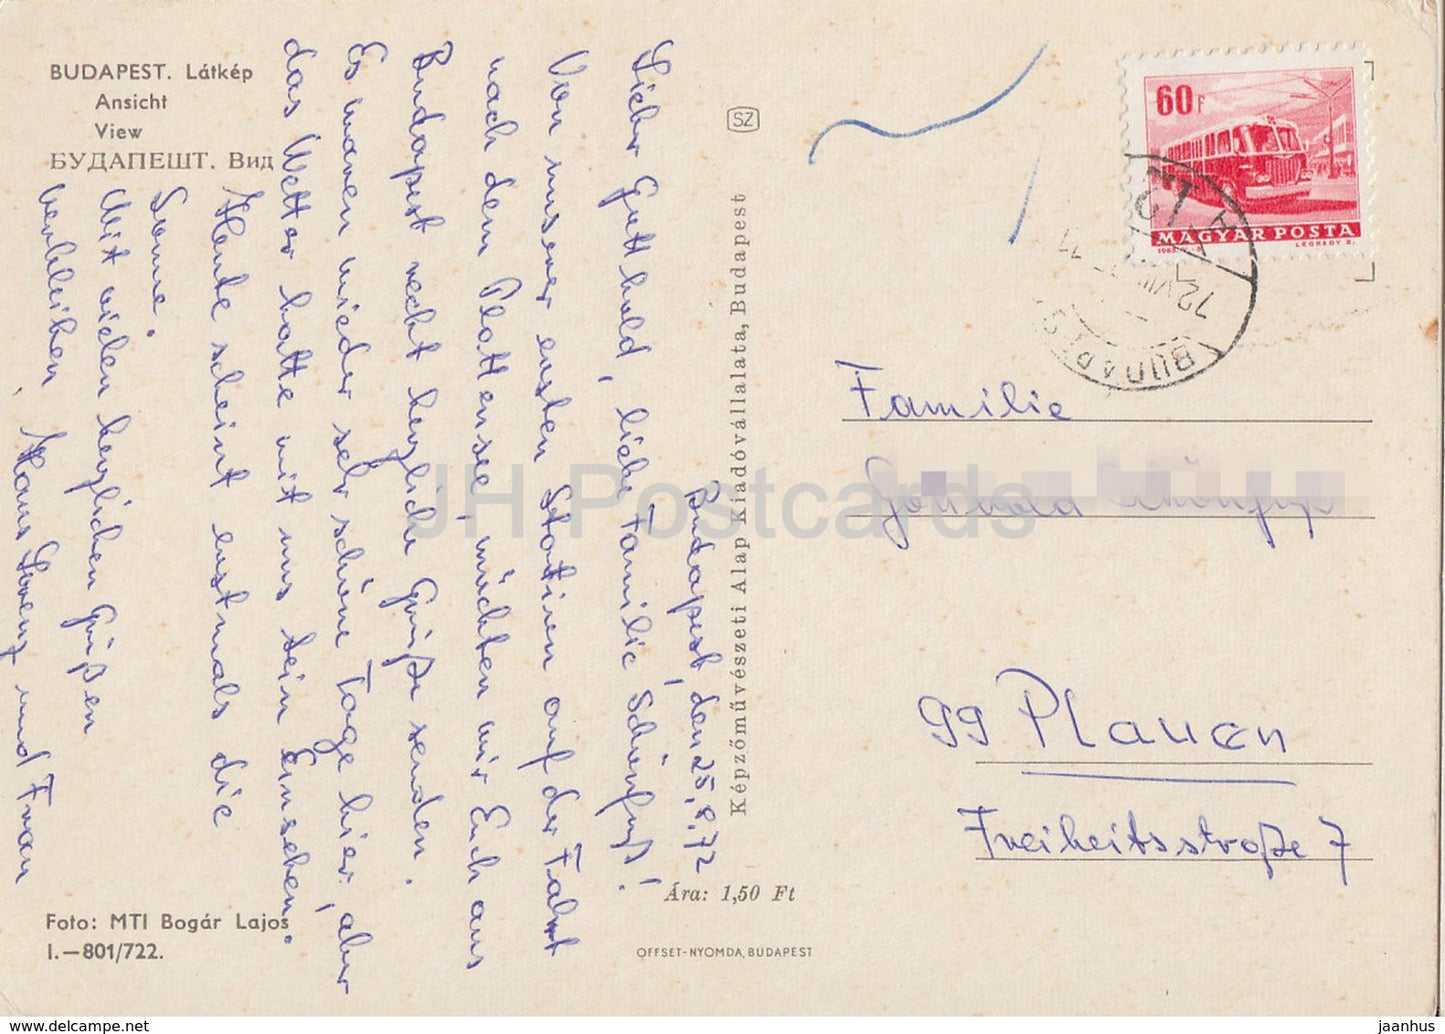 BUDAPEST. Látkép
Ansicht
View
БУДАПЕШТ. Вид
Budapest, den 25.8.72
Lieber Gotthold, liebe Familie Schönfuß!
Von unserer ersten Station auf der Fahrt
nach dem Plattensee, möchten wir Euch aus
Budapest recht herzliche Grüße senden.
Es waren wieder sehr schöne Tage hier, aber
das Wetter hatte mit uns kein Einsehen.
Heute scheint erstmals die
Sonne.
Mit vielen herzlichen Grüßen
verbleiben Hans Lorenz und Frau
Foto: MTI Bogár Lajos
I.—801/722.
SZ
Képzőművészeti Alap Kiadóvállalata, Budapest
Ára: 1,50 Ft
OFFSET-NYOMDA, BUDAPEST
60f
MAGYAR POSTA
1963
LÉGRÁDY S.
BUDAPEST
72 VIII
Familie
Gotthold
99 Plauen
Freiheitsstraße 7
JH Postcards
www.delcampe.net
jaanhus